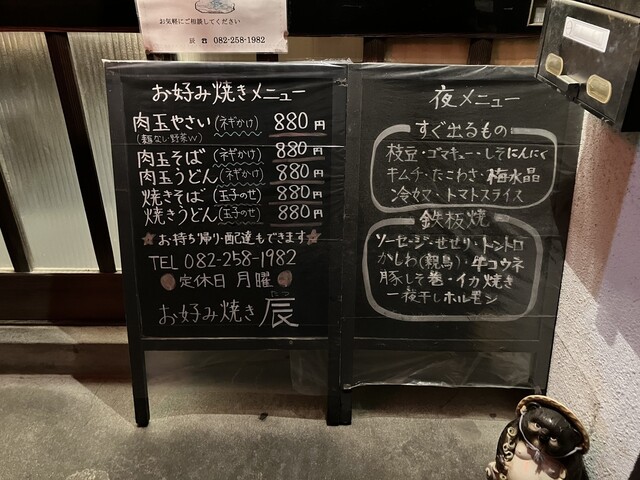 お気軽にご相談してください
辰 ☎ 082-258-1982
お好み焼きメニュー
肉玉やさい(ネギかけ) 880円
(麺なし野菜W)
肉玉そば(ネギかけ) 880円
肉玉うどん(ネギかけ) 880円
焼きそば(玉子のせ) 880円
焼きうどん(玉子のせ) 880円
★お持ち帰り・配達もできます★
TEL 082-258-1982
定休日 月曜
お好み焼き 辰
たつ
夜メニュー
すぐ出るもの
枝豆・ゴマキュー・しそにんにく
キムチ・たこわさ・梅水晶
冷奴・トマトスライス
鉄板焼
ソーセージ・せせり・トントロ
かしわ(親鳥)・牛コウネ
豚しそ巻・イカ焼き
一夜干しホルモン